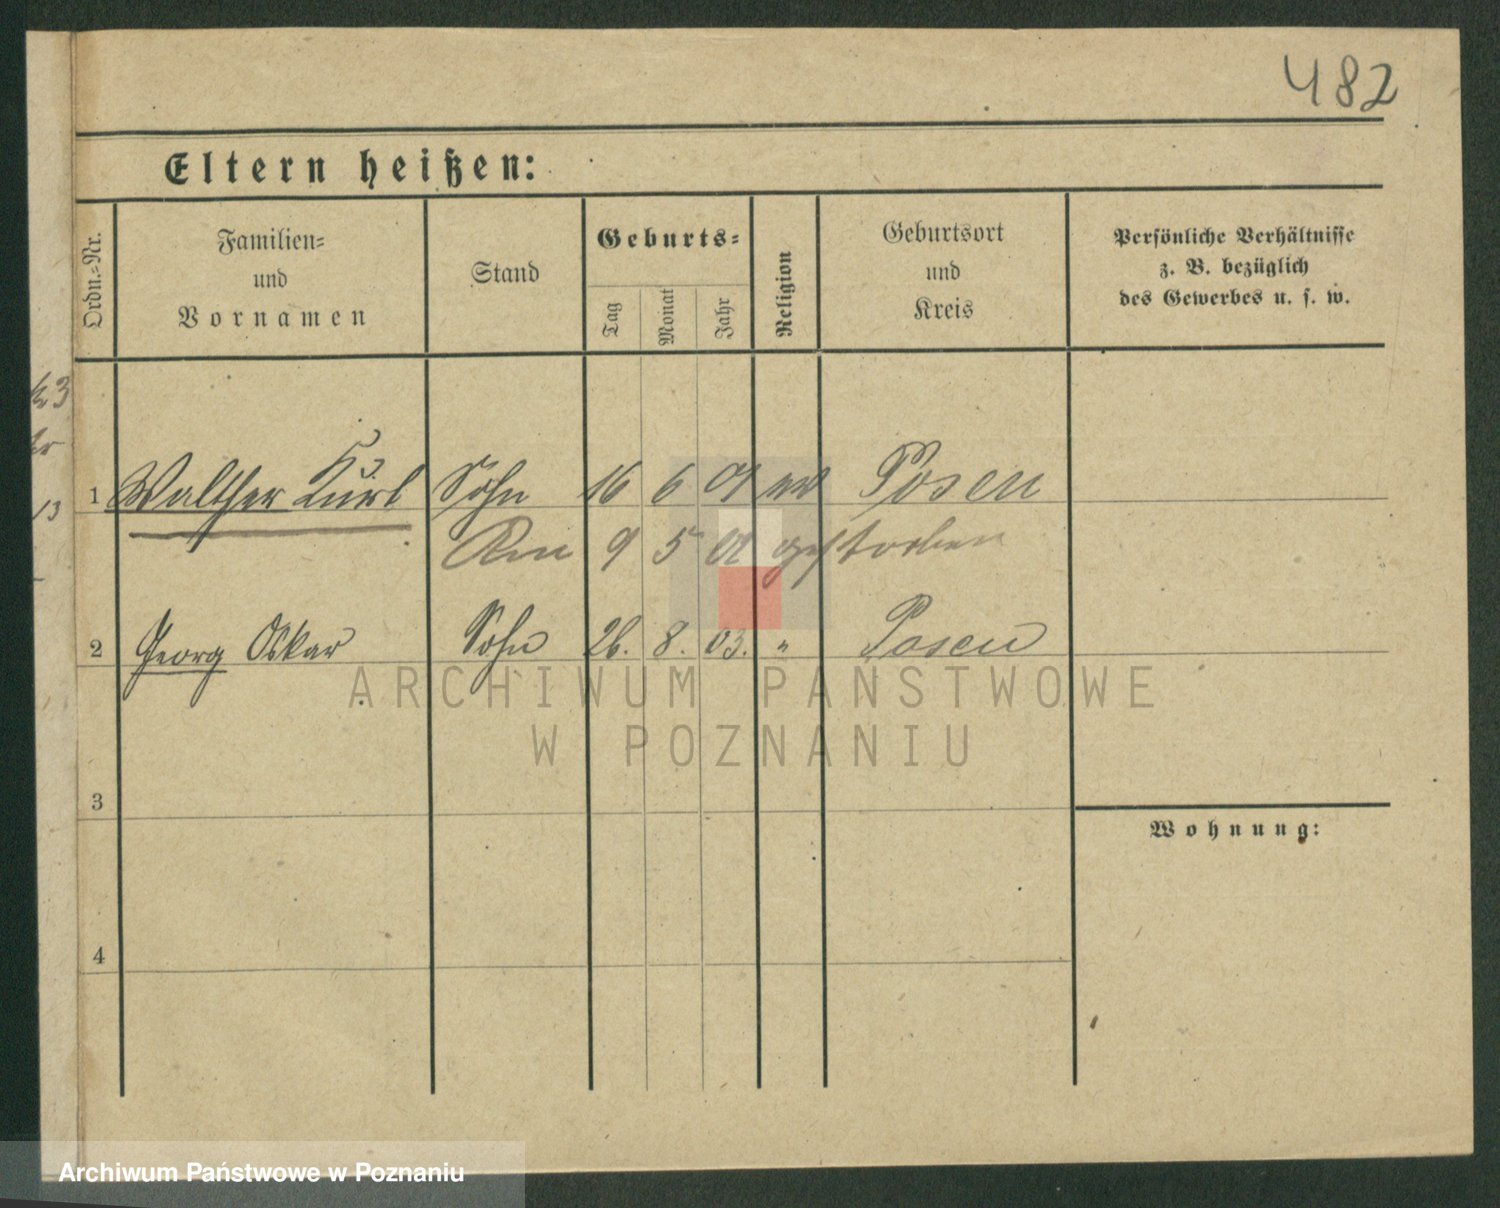 482
Eltern heißen:
Ordn.-Nr.
Familien-
und
Vornamen
Stand
Geburts-
Tag
Monat
Jahr
Religion
Geburtsort
und
Kreis
Persönliche Verhältnisse
z. B. bezüglich
des Gewerbes u. s. w.
1 Walther Kurt Sohn 16 6 01 ev Posen
9 5 gestorben
2 Georg Oskar Sohn 26. 8. 03. " Posen
ARCHIWUM PAŃSTWOWE
W POZNANIU
3
Wohnung:
4
Archiwum Państwowe w Poznaniu